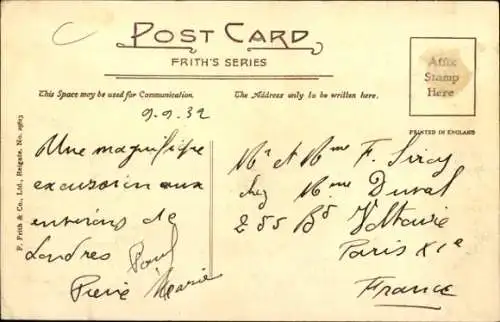 POST CARD
FRITH'S SERIES
This Space may be used for Communication.
The Address only to be written here.
Affix
Stamp
Here
PRINTED IN ENGLAND
F. Frith & Co., Ltd., Reigate. No.
9.9.32
Une magnifique
excursion aux
environs de
Londres Paul
Pierre Marie
Mr et Mme F. Siroy
chez Mme Duval
255 Bd Voltaire
Paris XIe
France